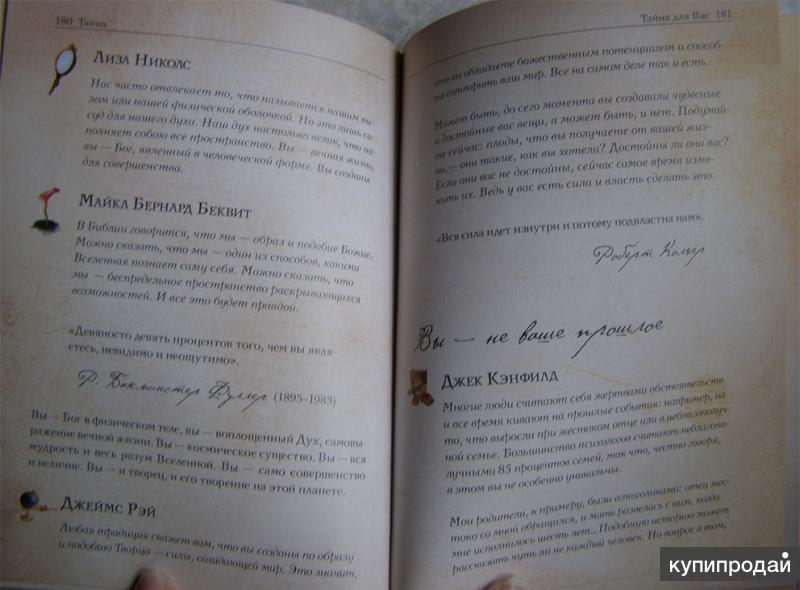 180 Тайна
Лиза Николс
Нас часто отвлекает то, что называется нашим те-
лом или нашей физической оболочкой. Но это лишь со-
суд для нашего духа. Наш дух настолько велик, что на-
полняет собою все пространство. Вы — вечная жизнь,
вы — Бог, явленный в человеческой форме. Вы созданы
для совершенства.
Майкл Бернард Беквит
В Библии говорится, что мы — образ и подобие Божие.
Можно сказать, что мы — один из способов, какими
Вселенная познает саму себя. Можно сказать, что
мы — беспредельное пространство раскрывающихся
возможностей. И все это будет правдой.
«Девяносто девять процентов того, чем вы явля-
етесь, невидимо и неощутимо».
Р. Бакминстер Фуллер (1895–1983)
Вы — Бог в физическом теле, вы — воплощенный Дух, самовы-
ражение вечной жизни. Вы — космическое существо. Вы — вся
мудрость и весь разум Вселенной. Вы — само совершенство
и величие. Вы — и творец, и его творение на этой планете.
Джеймс Рэй
Любая традиция скажет вам, что вы созданы по образу
и подобию Творца — силы, созидающей мир. Это значит,
Тайна для Вас 181
что вы обладаете божественным потенциалом и способ-
ны сотворить ваш мир. Все на самом деле так и есть.
Может быть, до сего момента вы создавали чудесные
и достойные вас вещи, а может быть, и нет. Подумай-
те сейчас: плоды, что вы получаете от вашей жиз-
ни,— они такие, как вы хотели? Достойны ли они вас?
Если они вас не достойны, сейчас самое время изме-
нить их. Ведь у вас есть сила и власть сделать это.
«Вся сила идет изнутри и потому подвластна нам».
Роберт Кольер
Вы — не ваше прошлое
Джек Кэнфилд
Многие люди считают себя жертвами обстоятельств
и все время кивают на прошлые события: например, на
то, что выросли при жестоком отце или в неблагополуч-
ной семье. Большинство психологов считают неблагопо-
лучными 85 процентов семей, так что, честно говоря,
в этом вы не особенно уникальны.
Мои родители, к примеру, были алкоголиками: отец жес-
токо со мной обращался, и мать развелась с ним, когда
мне исполнилось шесть лет.. Подобную историю может
рассказать чуть ли не каждый человек. Но вопрос в том,
купипродай